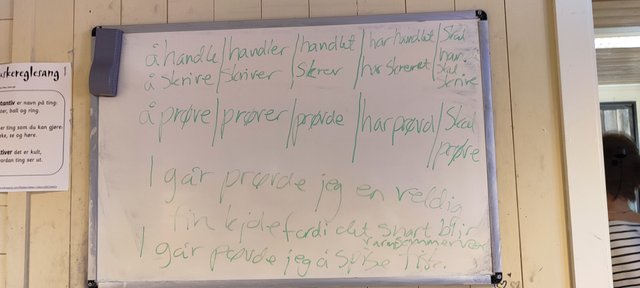 å handle / handler / handlet / har handlet / Skal han.
å Skrive / Skriver / Skrev / har skrevet / skal skrive
å prøve / prøver / prøvde / har prøvd / Skal prøve
I går prøvde jeg en veldig
fin kjole fordi det snart blir
varmsommervær
I går prøvde jeg å spise
skereglesang
tantiv er navn på ting:
ball og ring.
er ting som du kan gjøre:
se og høre.
tiver det er kult,
ordan ting ser ut.